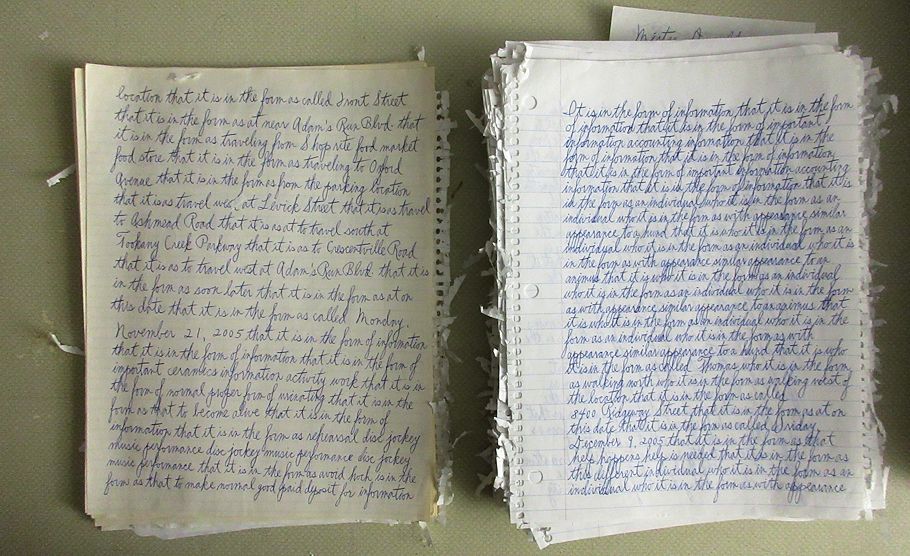 location that it is in the form as called Front Street
that it is in the form as at near Adam's Run Blvd. that
it is in the form as traveling from Shop rite food market
food store that it is in the form as traveling to Oxford
Avenue that it is in the form as from the parking location
that it is as travel west at Levick Street that it is as travel
to Ashmead Road that it is as at to travel south at
Tookany Creek Parkway that it is as to Crescentville Road
that it is as to travel west at Adam's Run Blvd. that it is
in the form as soon later that it is in the form as at on
this date that it is in the form as called Monday,
November 21, 2005 that it is in the form of information
that it is in the form of information that it is in the form of
important ceramics information activity work that it is in
the form of normal proper form of urinating that it is in the
form as that to become alive that it is in the form of
information that it is in the form as rehearsal disc jockey
music performance disc jockey music performance disc jockey
music performance that it is in the form as word, hoch, is in the
form as that to make normal good paid deposit for information
It is in the form of information that it is in the form
of information that it is in the form of important
information accounting information that it is in the
form of information that it is in the form of information
that it is in the form of important information accounting
information that it is in the form of information that it is
in the form as an individual who it is in the form as an
individual who it is in the form as with appearance similar
appearance to a hund that it is who it is in the form as an
individual who it is in the form as an individual who it is
in the form as with appearance similar appearance to an
animus that it is who it is in the form as an individual
who it is in the form as an individual who it is in the form
as with appearance similar appearance to an animus that
it is who it is in the form as an individual who it is in the
form as an individual who it is in the form as with
appearance similar appearance to a hund that it is who
it is in the form as called Thomas who it is in the form
as walking north who it is in the form as walking west of
the location that it is in the form as called
8400 Ridgeway Street that it is in the form as at on
this date that it is in the form as called Friday,
December 9, 2005 that it is in the form as that
help happens help is needed that it is in the form as
this different individual who it is in the form as an
individual who it is in the form as with appearance